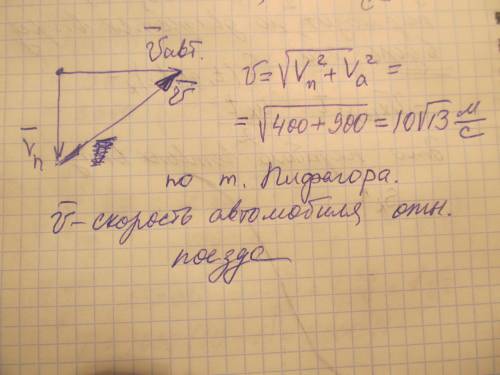 v̄авт.
v̄
V̄п
v = √(Vп² + Vа²) =
= √(400+900) = 10√13 м/с
по т. Пифагора.
v̄ – скорость автомобиля отн.
поезда